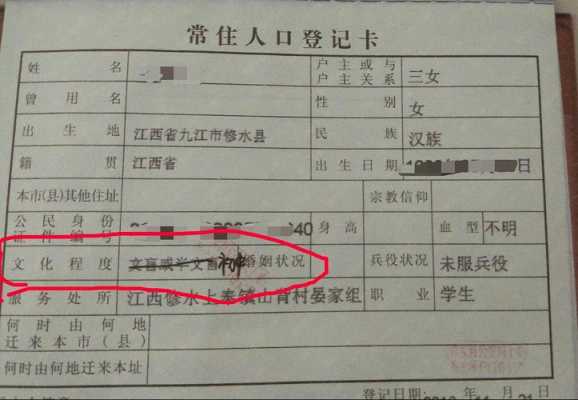 常住人口登记卡
姓名 户主或与户主关系 三女
曾用名 性别 女
出生地 江西省九江市修水县 民族 汉族
籍贯 江西省 出生日期 日
本市(县)其他住址 宗教信仰
公民身份证件编号 40 身高 血型 不明
文化程度 文盲或半文盲 初中 婚姻状况 兵役状况 未服兵役
服务处所 江西修水上奉镇山背村晏家组 职业 学生
何时由何地迁来本市(县)
何时由何地迁来本址
登记日期: 年11月21日